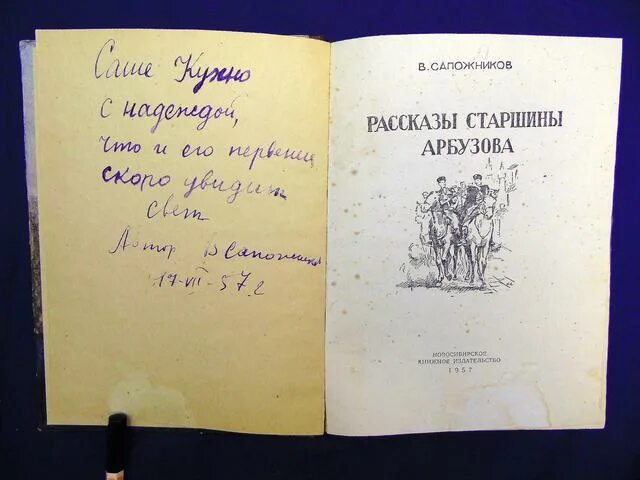 Саше Кухно
с надеждой,
что и его первенец
скоро увидит
свет
Автор В Сапожников
19-VII-57 г
В. САПОЖНИКОВ
РАССКАЗЫ СТАРШИНЫ
АРБУЗОВА
НОВОСИБИРСКОЕ
КНИЖНОЕ ИЗДАТЕЛЬСТВО
1957